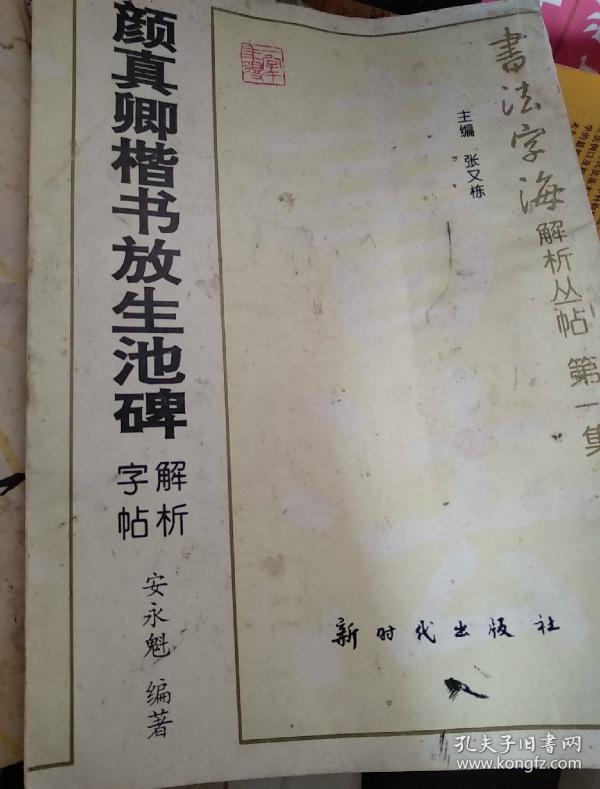 書法字海
解析丛帖 第一集
主编 张又栋
颜真卿楷书放生池碑
解析
字帖
安永魁 编著
新时代出版社
孔夫子旧书网
www.kongfz.com